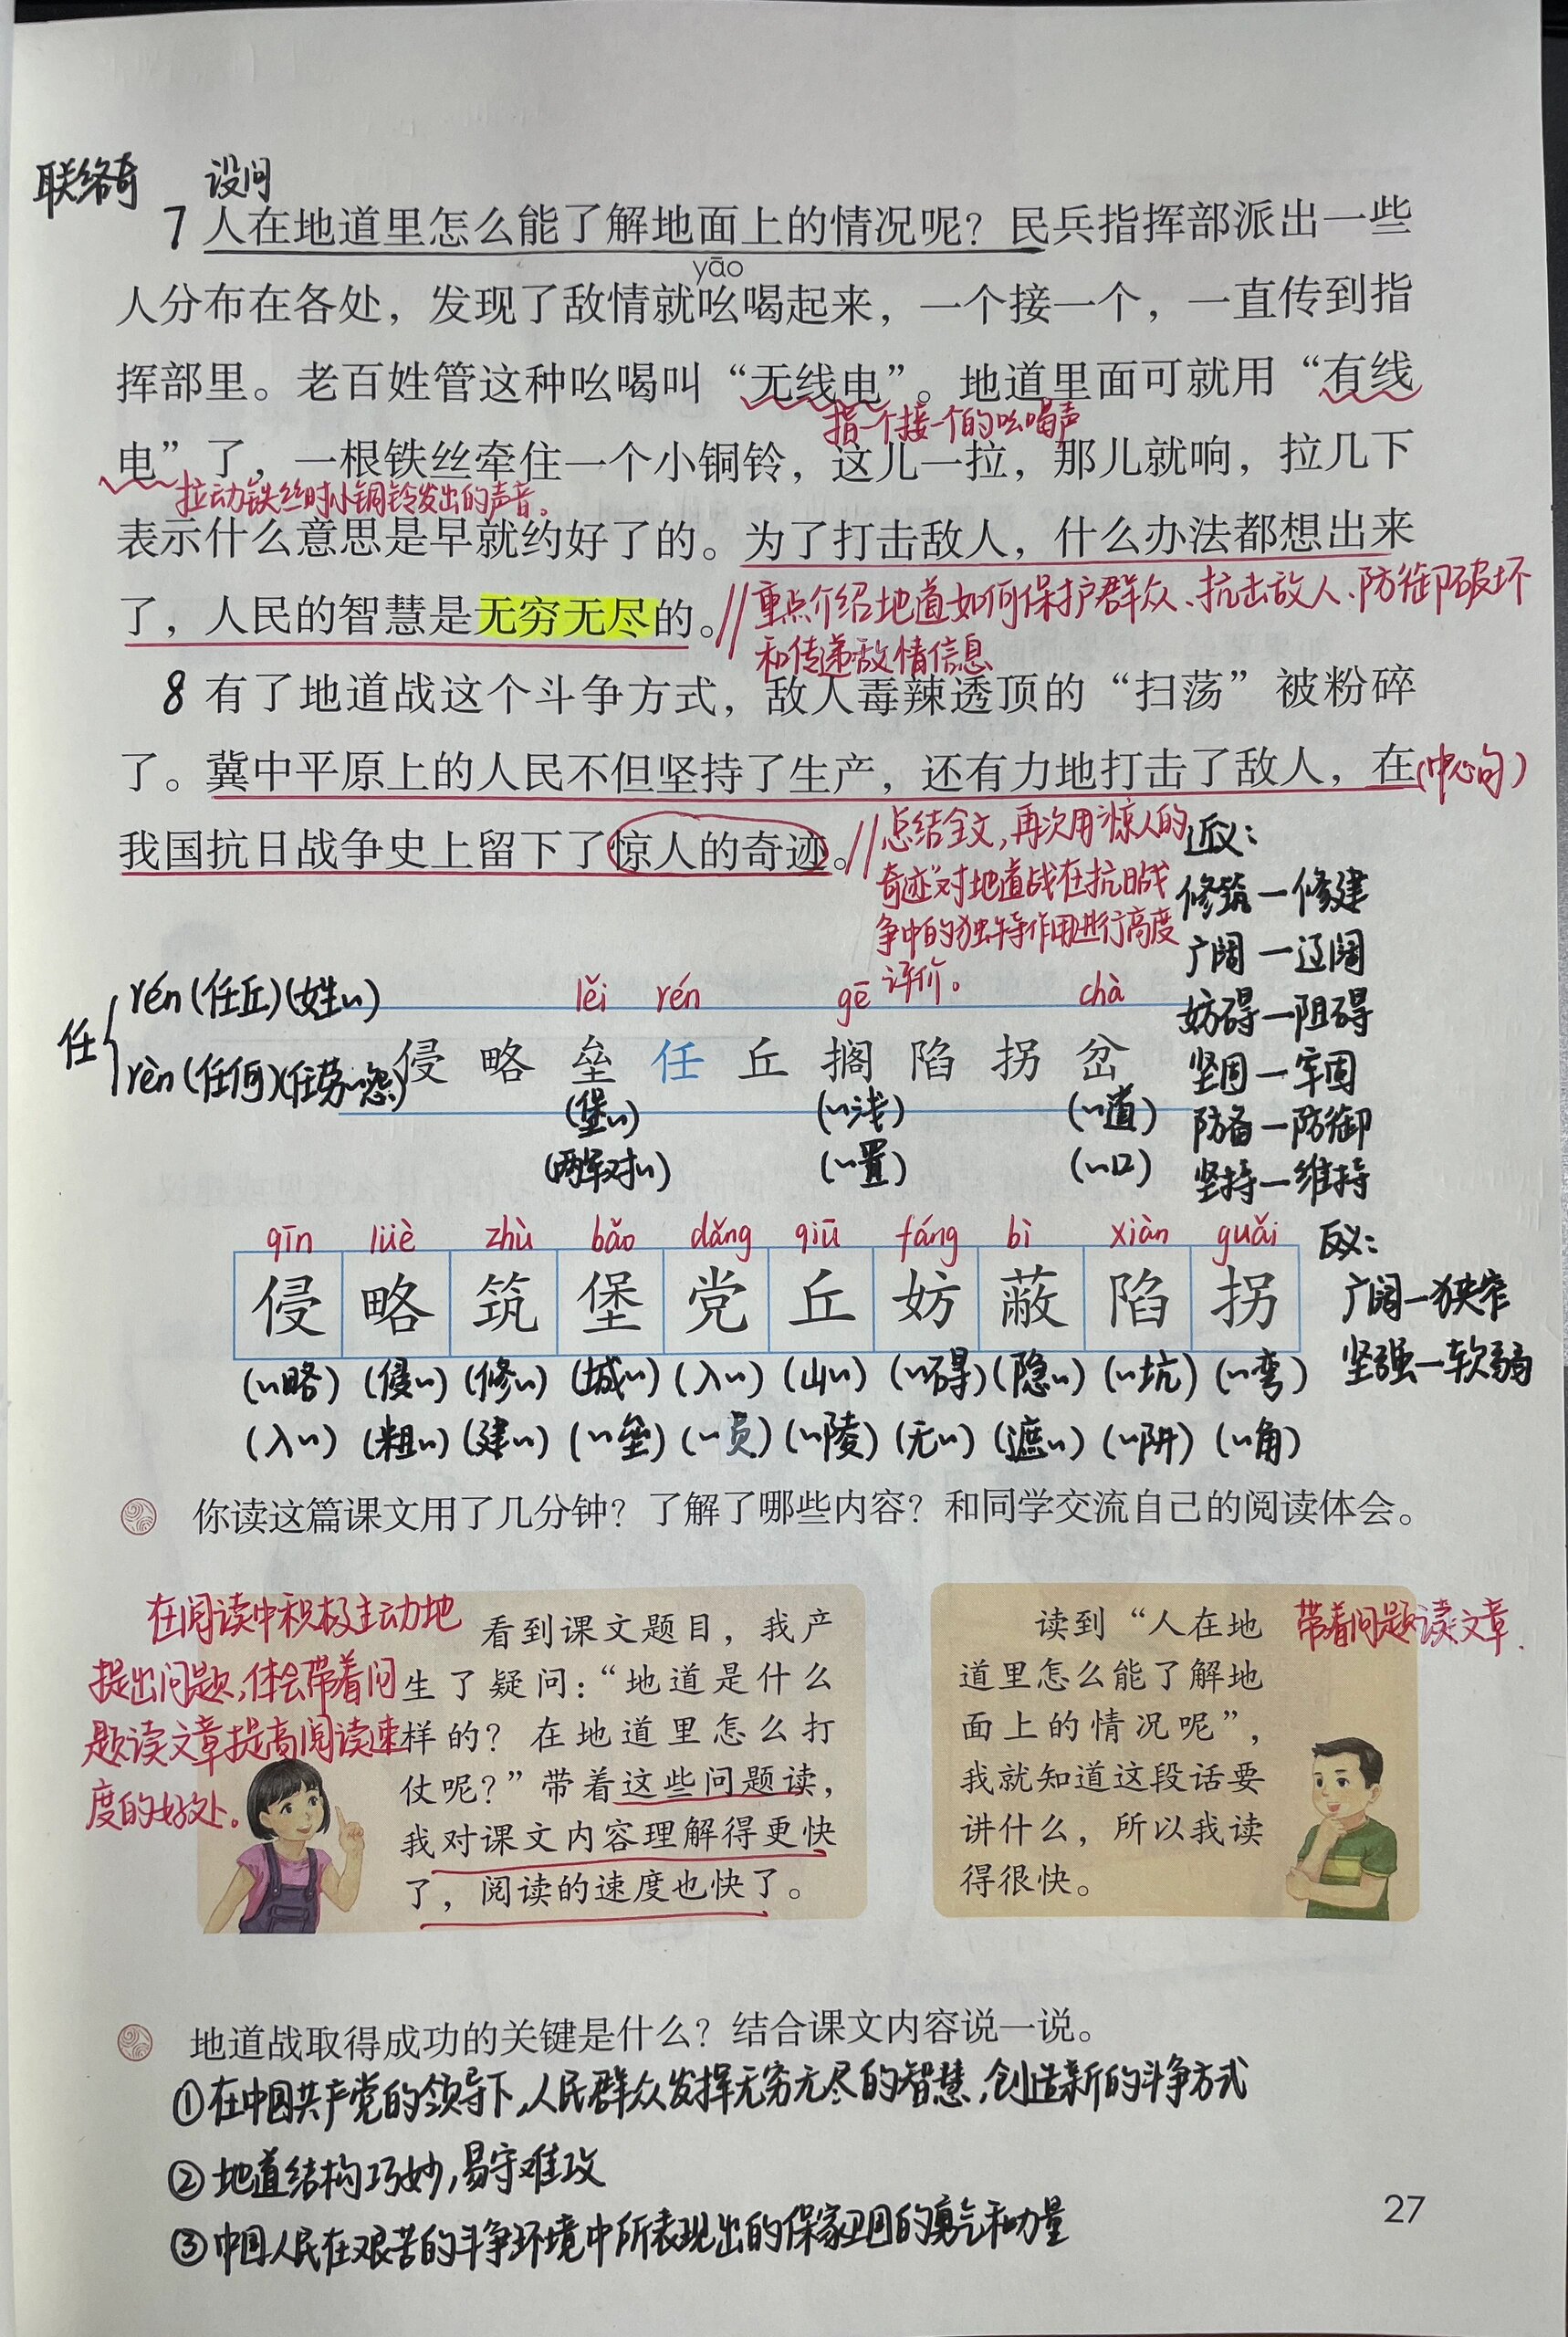 联络奇 设问
7 人在地道里怎么能了解地面上的情况呢？民兵指挥部派出一些
yāo
人分布在各处，发现了敌情就吆喝起来，一个接一个，一直传到指
挥部里。老百姓管这种吆喝叫“无线电”。地道里面可就用“有线
指一个接一个的吆喝声
电”了，一根铁丝牵住一个小铜铃，这儿一拉，那儿就响，拉几下
拉动铁丝时小铜铃发出的声音。
表示什么意思是早就约好了的。为了打击敌人，什么办法都想出来
了，人民的智慧是无穷无尽的。//重点介绍地道如何保护群众、抗击敌人、防御破坏
和传递敌情信息
8 有了地道战这个斗争方式，敌人毒辣透顶的“扫荡”被粉碎
了。冀中平原上的人民不但坚持了生产，还有力地打击了敌人，在(中心句)
我国抗日战争史上留下了惊人的奇迹。//总结全文，再次用“惊人的
奇迹”对地道战在抗日战
争中的独特作用进行高度
评价。
近义：
修筑—修建
广阔—辽阔
妨碍—阻碍
坚固—牢固
防备—防御
坚持—维持
任 rén(任丘)(姓~)
rèn(任何)(任劳~怨)
lěi rén gē chà
侵 略 垒 任 丘 搁 陷 拐 岔
(堡~) (~浅) (~道)
(两军对~) (~置) (~口)
qīn lüè zhù bǎo dǎng qiū fáng bì xiàn guǎi
侵 略 筑 堡 党 丘 妨 蔽 陷 拐
(~略) (侵~) (修~) (城~) (入~) (山~) (~碍) (隐~) (~坑) (~弯)
(入~) (粗~) (建~) (~垒) (~员) (~陵) (无~) (遮~) (~阱) (~角)
反义：
广阔—狭窄
坚强—软弱
你读这篇课文用了几分钟？了解了哪些内容？和同学交流自己的阅读体会。
在阅读中积极主动地
提出问题，体会带着问
题读文章提高阅读速
度的好处。
看到课文题目，我产
生了疑问：“地道是什么
样的？在地道里怎么打
仗呢？”带着这些问题读，
我对课文内容理解得更快
了，阅读的速度也快了。
读到“人在地
道里怎么能了解地
面上的情况呢”，
我就知道这段话要
讲什么，所以我读
得很快。
带着问题读文章.
地道战取得成功的关键是什么？结合课文内容说一说。
①在中国共产党的领导下，人民群众发挥无穷无尽的智慧，创造新的斗争方式
②地道结构巧妙，易守难攻
③中国人民在艰苦的斗争环境中所表现出的保家卫国的勇气和力量
27